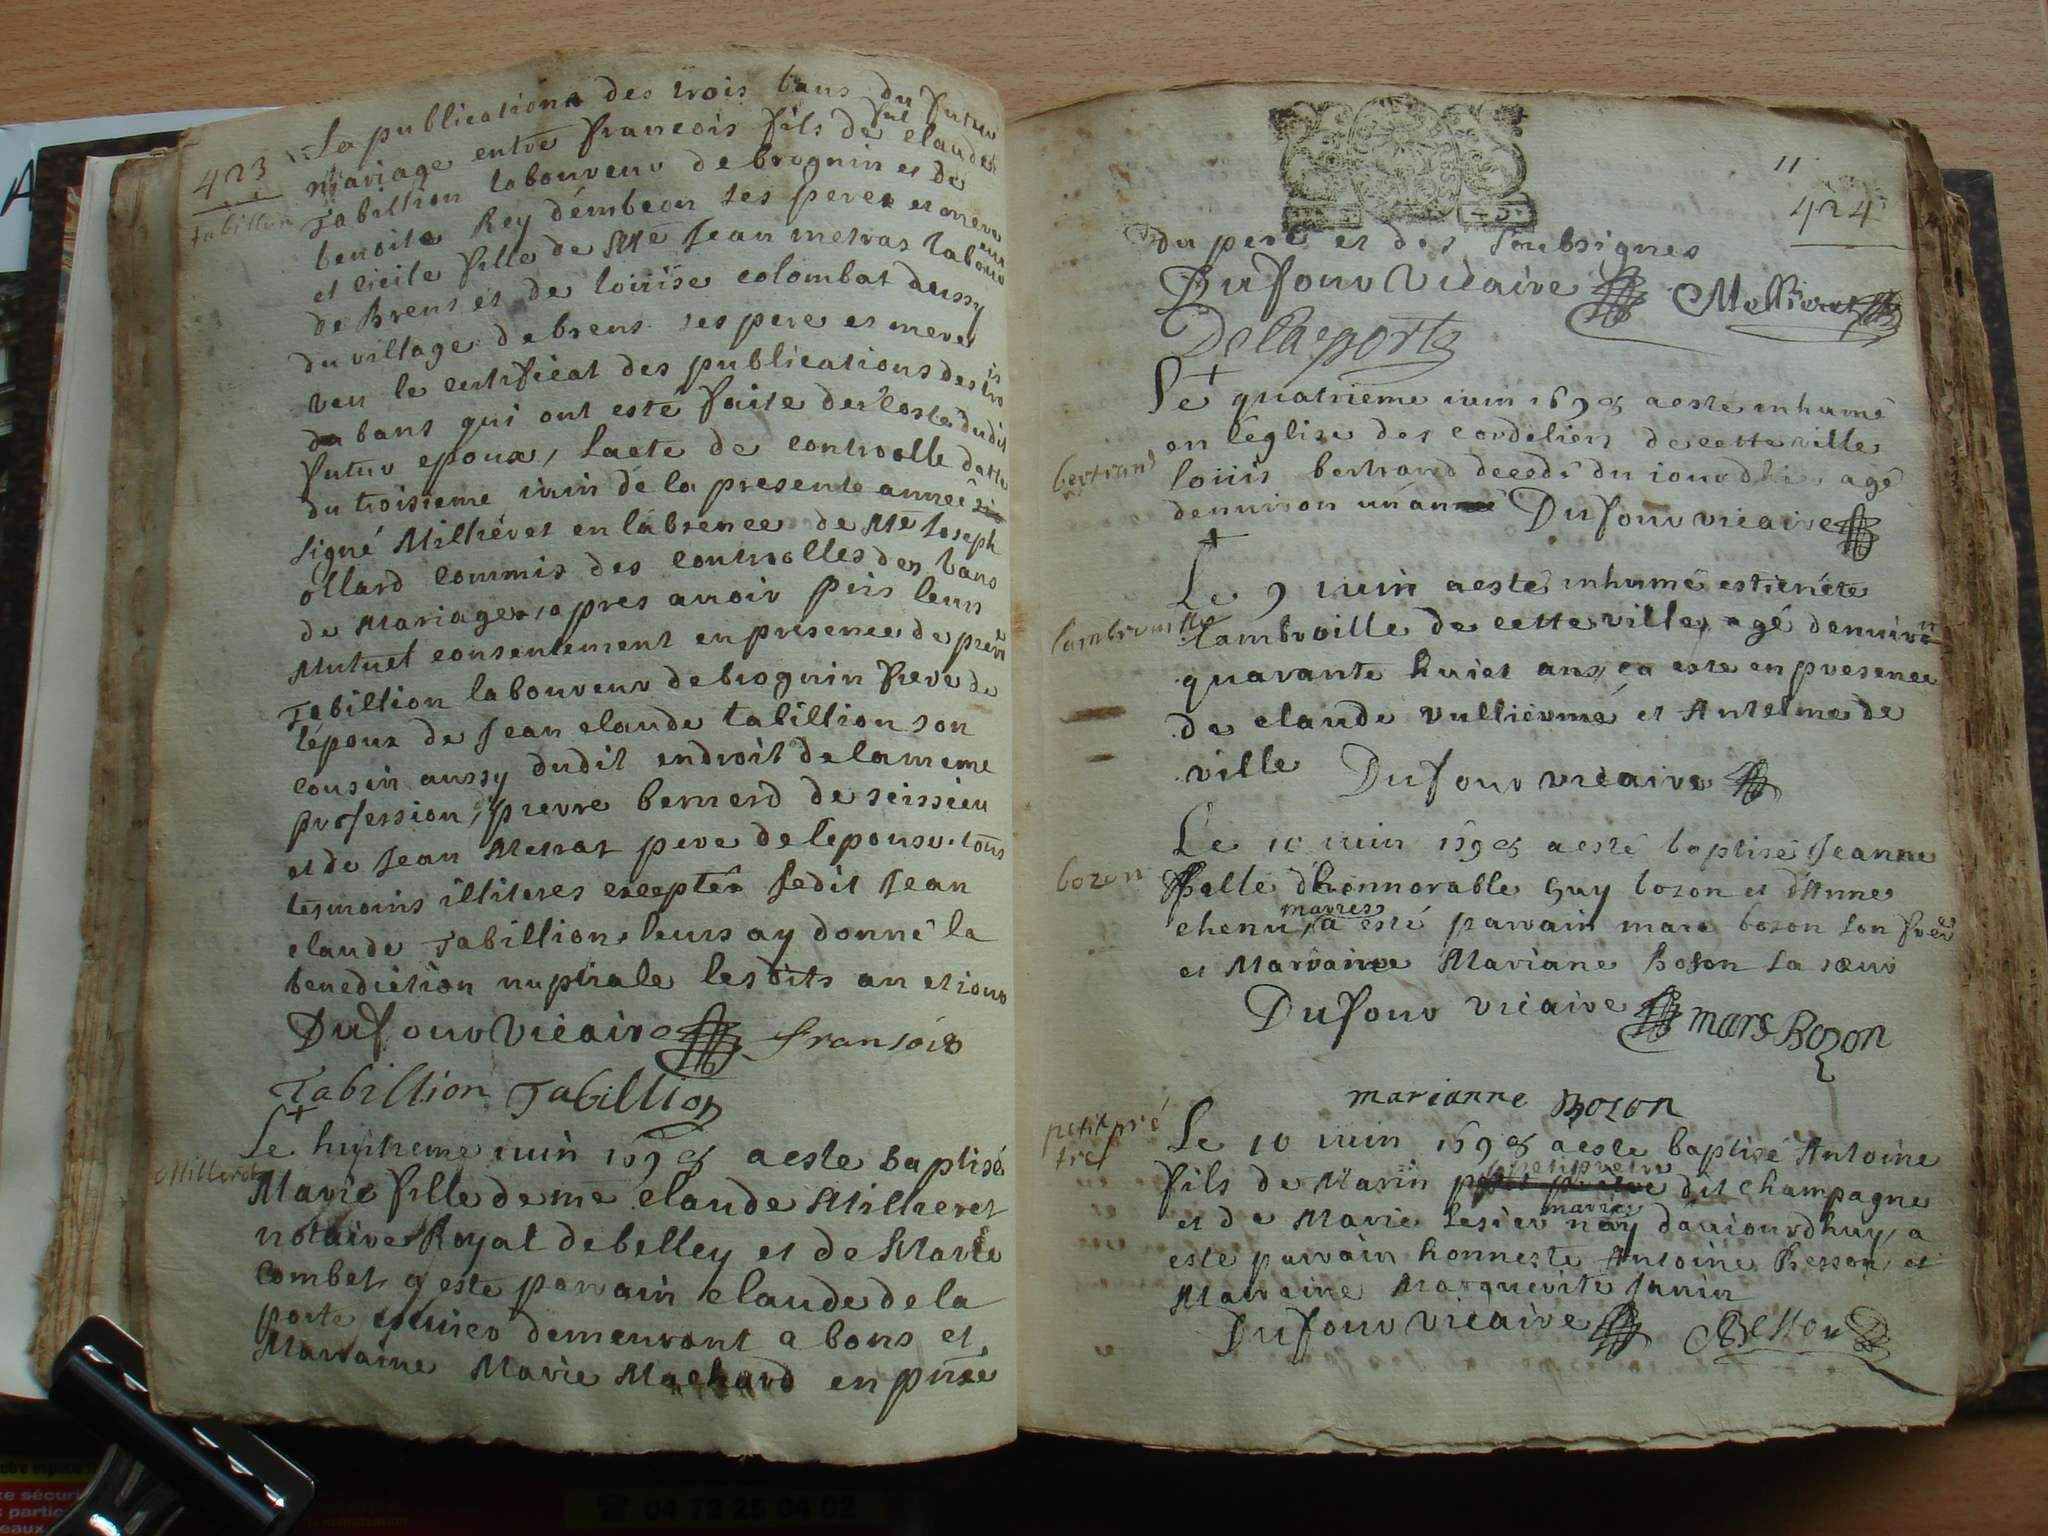 423
La publication des trois bans du futur
fut
mariage entre francois fils de claude
tabillion
Tabillion laboureur de brognin et de
benoite Rey d'émbeon ses pere et mere
et cicile fille de Mre Jean metras laboureur
de Brens et de loüise colombat aussy
du village de brens ses pere et mere
veu le certificat des publications des trois
bans qui ont esté faite der coste dudit
futur epoux, lacte de controolle datté
du troisieme iuin de la presente année
signé Millieret en labsence de Mre Joseph
ollard commis des controolles des bans
de Mariages, apres auoir pris leurs
Mutuel consentement en presence de pierre
Tabillion laboureur de brognin frere de
lépoux de Jean claude tabillion son
cousin aussy dudit endroit de la meme
profession, pierre bernerd de seissieu
et de Jean Metras pere de lepouse tous
tesmoins illiteres excepté ledit Jean
claude Tabillion, leurs ay donné la
benediction nuptiale les dits an et iour
Dufour Vicaire francois
Tabillion Tabillion
Le huitieme iuin 1698 a este baptisé
Milleret
Marie fille de me claude Millieret
notaire Royal de belley et de Marie
Combet a este parrain claude de la
porte demeurant a bons et
Marraine Marie Machard en pñce
11
424
du pere et des soubsignes
Dufour Vicaire Millieret
Delaporte
Le quatrieme iuin 1698 a este inhumé
en léglise des cordeliers de cette ville
bertrand
loüis bertrand decedé du iourdhier agé
denuiron un an Dufour vicaire
Le 9 iuin a esté inhumé estienete
lambrouille
lambroille de cette ville, agé denuiron
quarante huict ans, ça este en presence
de claude vullierme et Antelme de
ville Dufour vicaire
Le 10 iuin 1698 a esté baptisé Jeanne
bozon
fille d'honnorable Guy bozon et d'Anne
maries
chenu, a esté parrain marc bozon son frere
et Marraine Mariane Boson sa sœur
Dufour vicaire marc Bozon
marianne Bozon
petit pré
tre
Le 10 iuin 1698 a este baptisé Antoine
petitpretre
fils de Marin petit pretre dit champagne
maries
et de Marie Lesier nay daujourdhuy, a
este parrain honneste Antoine Besson et
Marraine Marguerite Janin
Dufour vicaire Besson
04 79 25 04 02